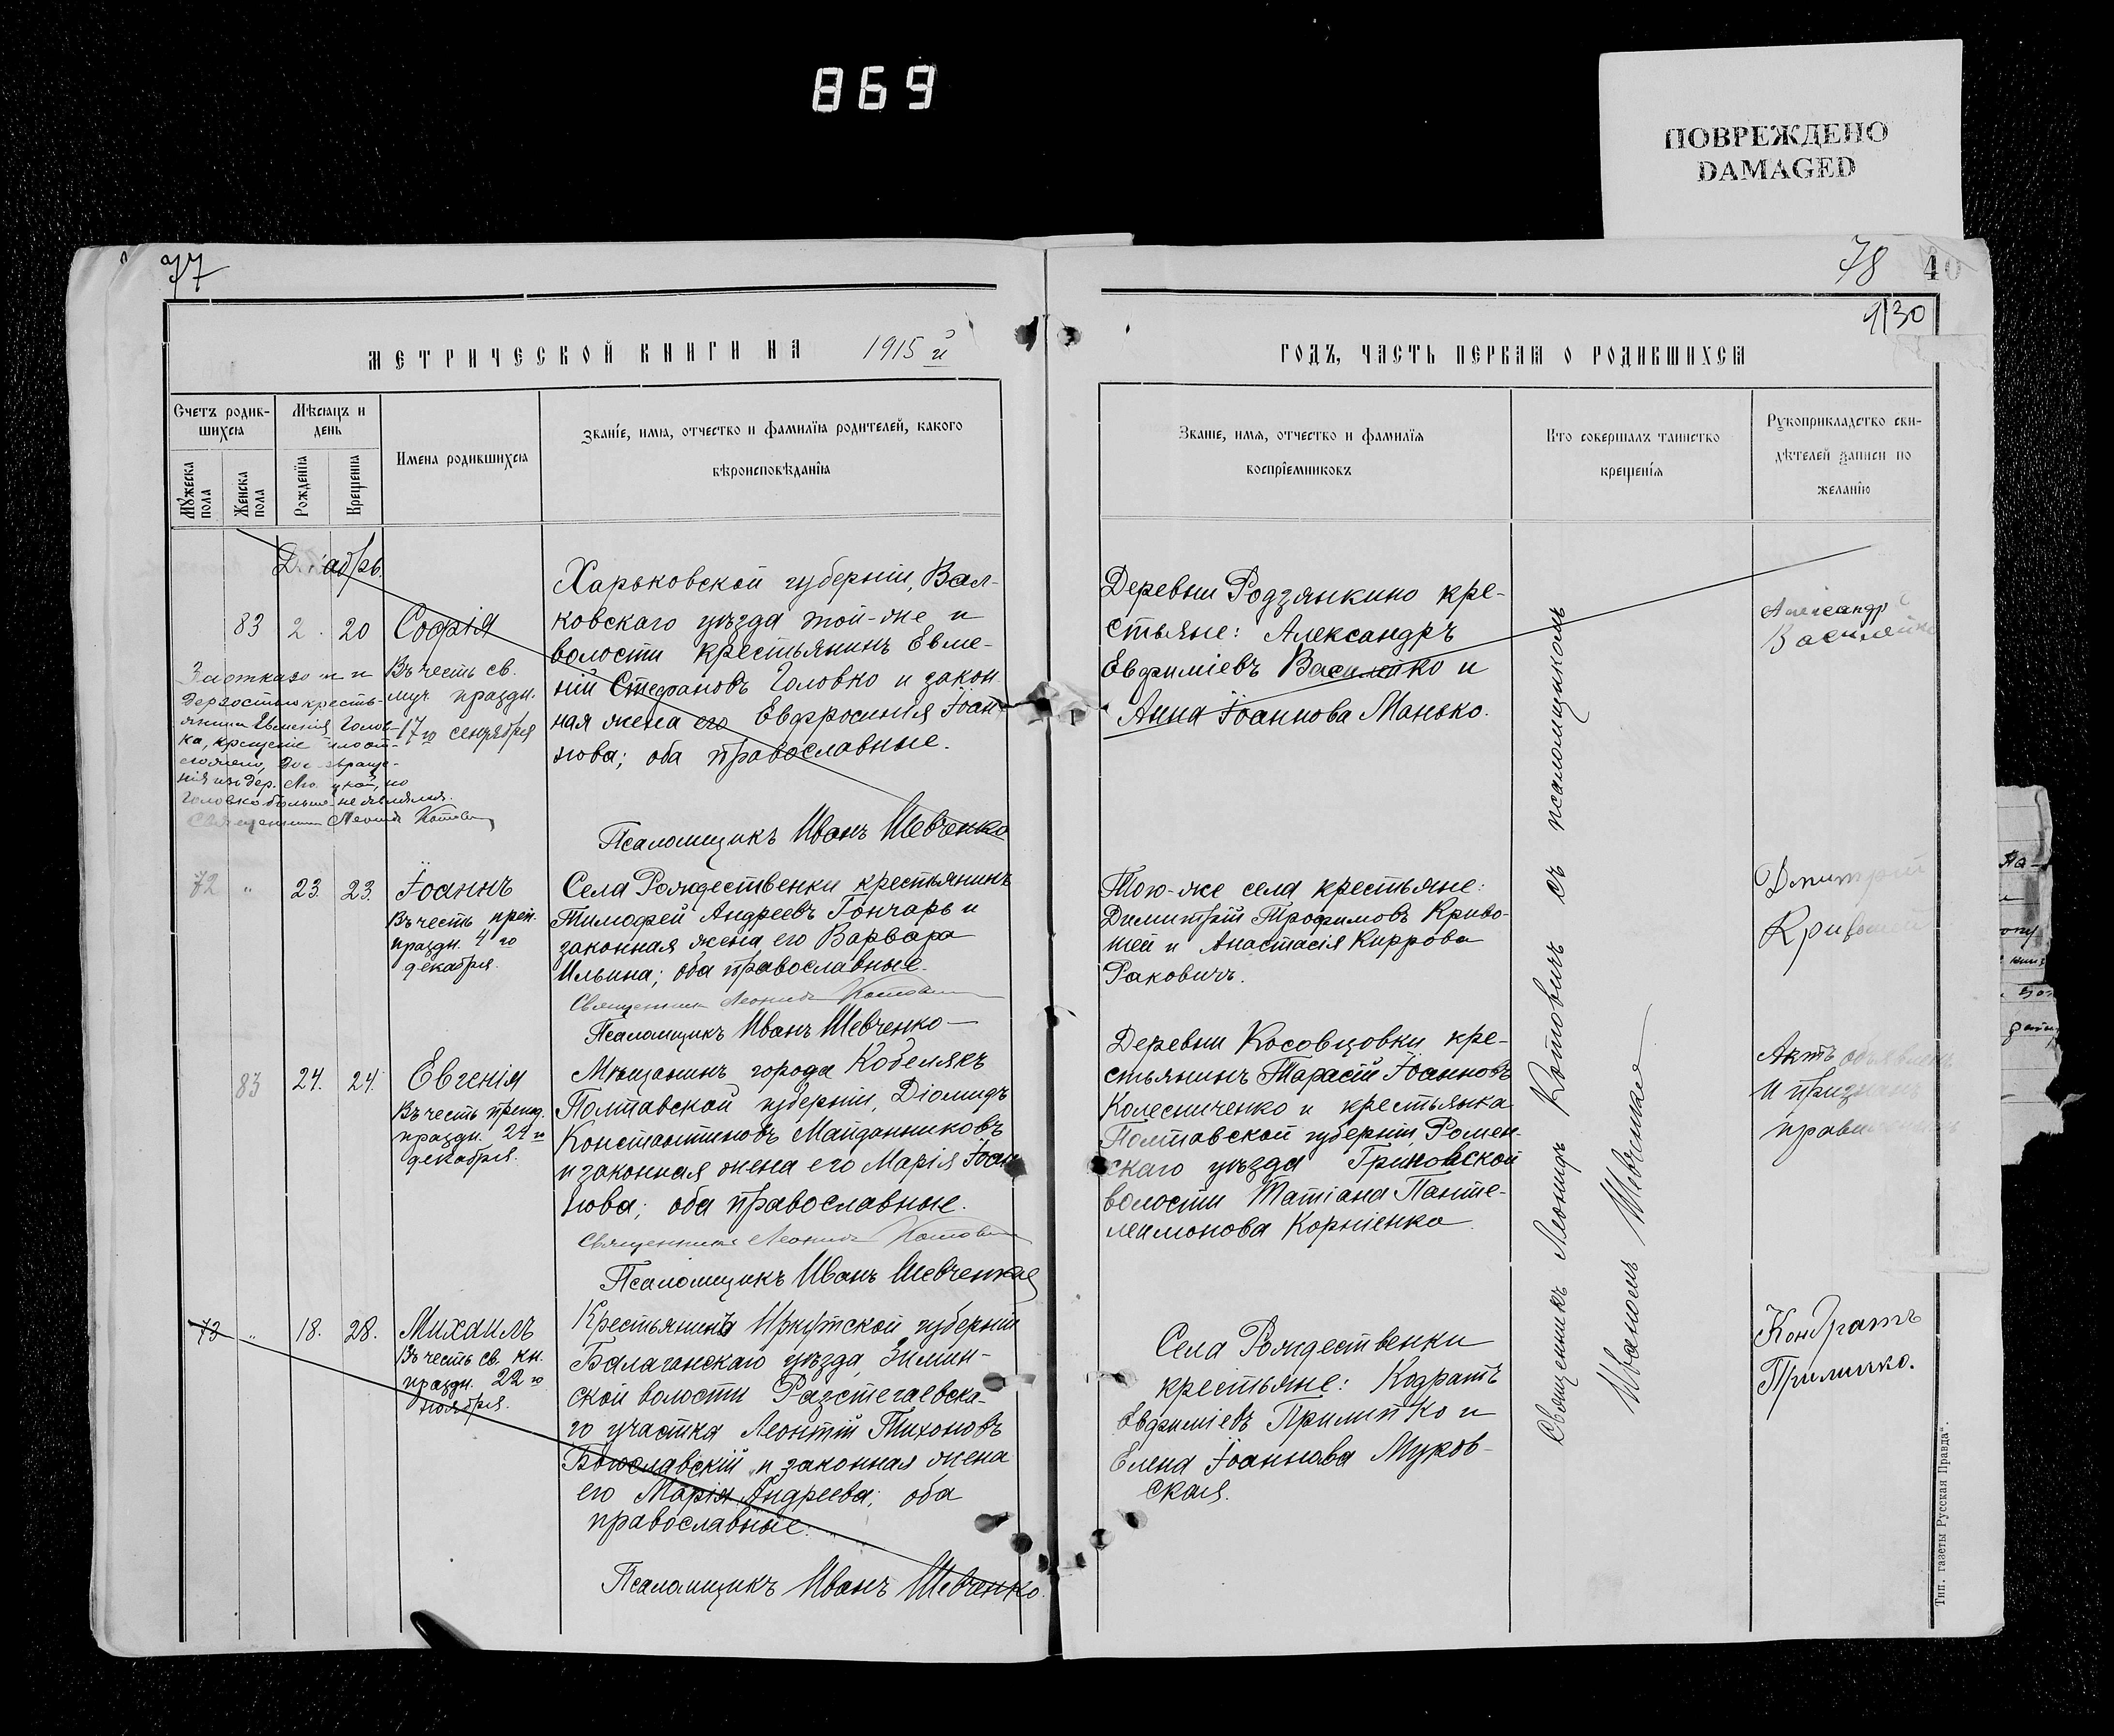 869
ПОВРЕЖДЕНО
DAMAGED
77
78
40
130
МЕТРИЧЕСКОЙ КНИГИ НА 1915 й
ГОДЪ, ЧАСТЬ ПЕРВАЯ О РОДИВШИХСЯ
Счетъ родив-
шихся
Мужеска пола
Женска пола
Мѣсяцъ и
день
Рожденїя
Крещенїя
Имена родившихся
Званїе, имя, отчество и фамилїя родителей, какого
вѣроисповѣданїя
Званїе, имя, отчество и фамилїя
воспрїемниковъ
Кто совершалъ таинство
крещенїя
Рукоприкладство сви-
дѣтелей записи по
желанїю
Декабрь.
83 2. 20 Софія
Въ честь св.
муч. праздн.
17го сентября
За отказом и
дерзостью кресть-
янина Евменія Голов-
ка, крещеніе
Головко больше не являлся.
Священникъ Леонидъ Котович
Харьковской губерніи, Вал-
ковскаго уѣзда той-же и
волости крестьянинъ Евме-
ній Стефановъ Головко и закон
ная жена его Евфросинія Іоан
нова; оба православные.
Псаломщикъ Иванъ Шевченко
Деревни Родзянкино кре-
стьяне: Александръ
Евфиміевъ Василейко и
Анна Іоаннова Манько.
Александр
Василейко
72 " 23. 23. Іоаннъ
Въ честь преп.
праздн. 4го
декабря.
Села Рождественки крестьянинъ
Тимофей Андреевъ Гончаръ и
законная жена его Варвара
Ильина; оба православные.
Священник Леонидъ Котович
Псаломщикъ Иванъ Шевченко
Того-же села крестьяне:
Димитрій Трофимовъ Криво-
шей и Анастасія Киррова
Раковичъ.
Дмитрій
Кривошей
83 24. 24. Евгенія
Въ честь препод.
праздн. 24го
декабря.
Мѣщанинъ города Кобелякъ
Полтавской губерніи, Діомидъ
Константиновъ Майданниковъ
и законная жена его Марія Іоан
нова; оба православные.
Священникъ Леонидъ Котович
Псаломщикъ Иванъ Шевченко
Деревни Косовцовки кре-
стьянинъ Тарасій Іоанновъ
Колесниченко и крестьянка
Полтавской губерніи, Ромен-
скаго уѣзда Гриновской
волости Татіана Панте-
леимонова Корніенко.
Актъ объявленъ
и признанъ
73 " 18. 28. Михаилъ
Въ честь св. кн.
праздн. 22го
ноября.
Крестьянинъ Иркутской губерніи
Балаганскаго уѣзда, Зимин-
ской волости Разстегаевска-
го участка Леонтій Тихоновъ
Богославскій и законная жена
его Марія Андреева; оба
православные.
Псаломщикъ Иванъ Шевченко.
Села Рождественки
крестьяне: Кодратъ
Евфиміевъ Прилипко и
Елена Іоаннова Муров-
ская.
Кондратъ
Прилипко.
Священникъ Леонидъ Котовичъ съ псаломщикомъ
Иваномъ Шевченко
Тип. газеты „Русская Правда“.